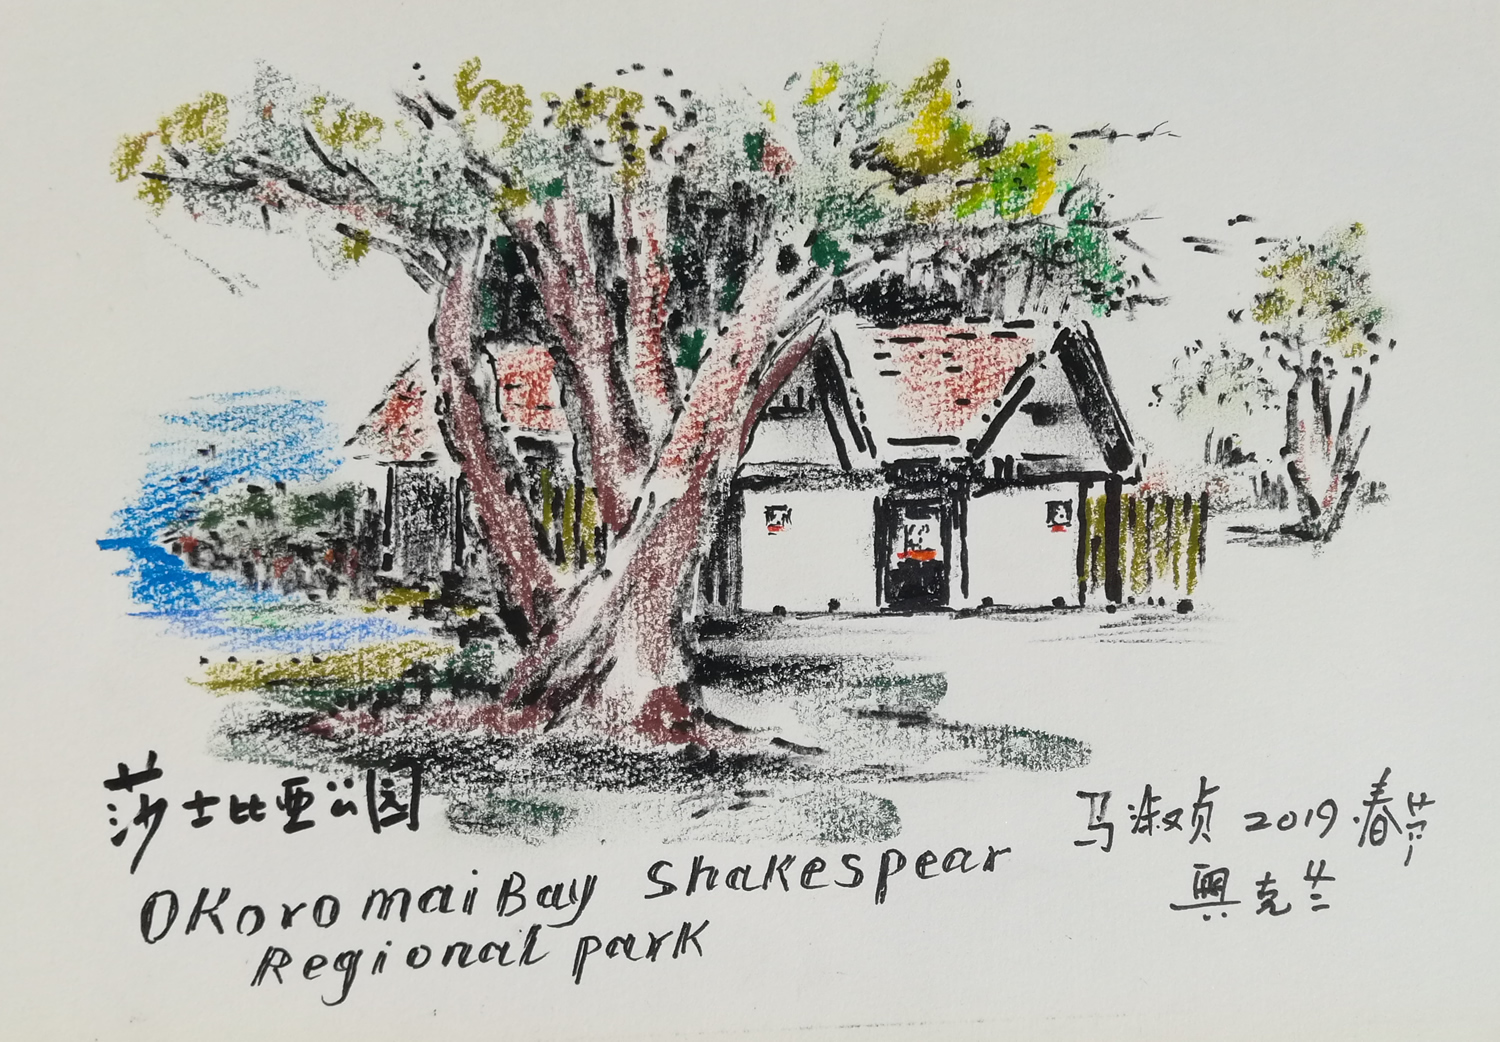 莎士比亚公园
Okoromai Bay Shakespear
Regional park
马淑贞 2019.春节
奥克兰